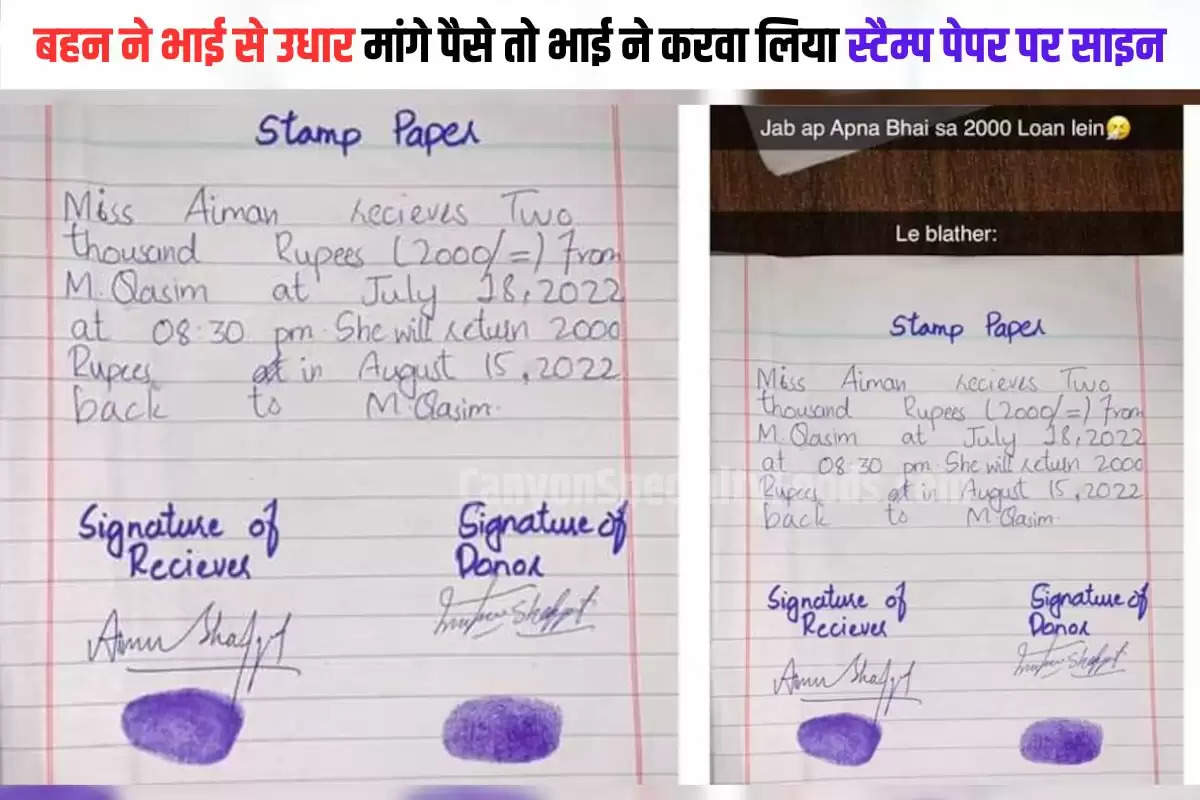 बहन ने भाई से उधार मांगे पैसे तो भाई ने करवा लिया स्टैम्प पेपर पर साइन
Stamp Paper
Miss Aiman recieves Two
thousand Rupees (2000/=) From
M. Qasim at July 18, 2022
at 08:30 pm. She will return 2000
Rupees in August 15, 2022
back to M. Qasim.
Signature of
Reciever
Signature of
Donor
Jab ap Apna Bhai sa 2000 Loan lein🤧
Le blather:
Stamp Paper
Miss Aiman recieves Two
thousand Rupees (2000/=) From
M. Qasim at July 18, 2022
at 08:30 pm. She will return 2000
Rupees in August 15, 2022
back to M. Qasim.
Signature of
Reciever
Signature of
Donor